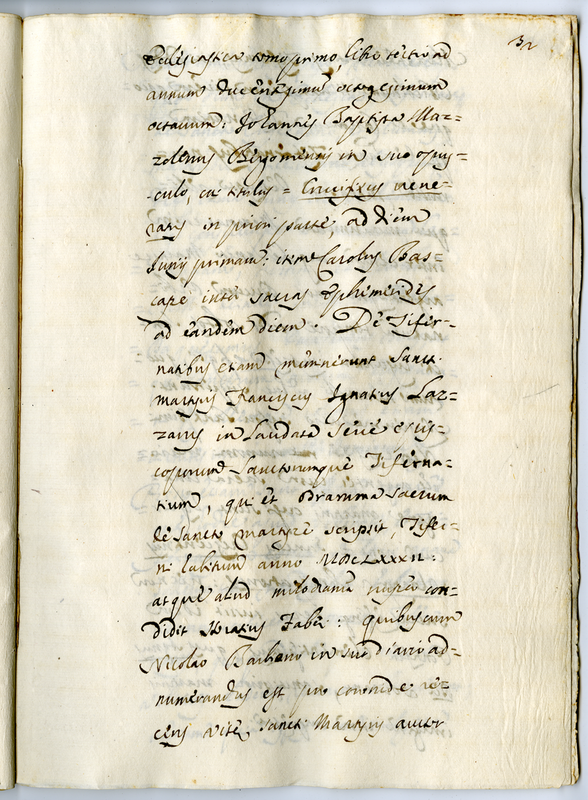 32
Eclesiastica tomo primo, libro tertio ad
annum ducentesimū octogesimum
octavum: Johannes Baptista Ma==
zolenus Bergomensis in suo opus=
culo, cui titulus = Crucifixus vene=
ratus in priori parte, ad diem
Junij primam: item Carolus Bas=
capè inter sacras Ephemerides
ad eandem diem. De Tifer=
natibus etiam meminerunt Sanct.
martyris Franciscus Ignatius Laz=
zaris in laudata serie epis=
coporum Sanctorumque Tiferna=
tium, qui et Dramma sacrum
de Sancto martyre scripsit, Tifer=
ni editum anno MDCLXXXII:
atque aliud nuper con=
didit Horatius Faber: quibuscum
Nicolao Barbano in suo diario ad=
numerandus est pro re=
cens vitę Sancti Martyris auctor